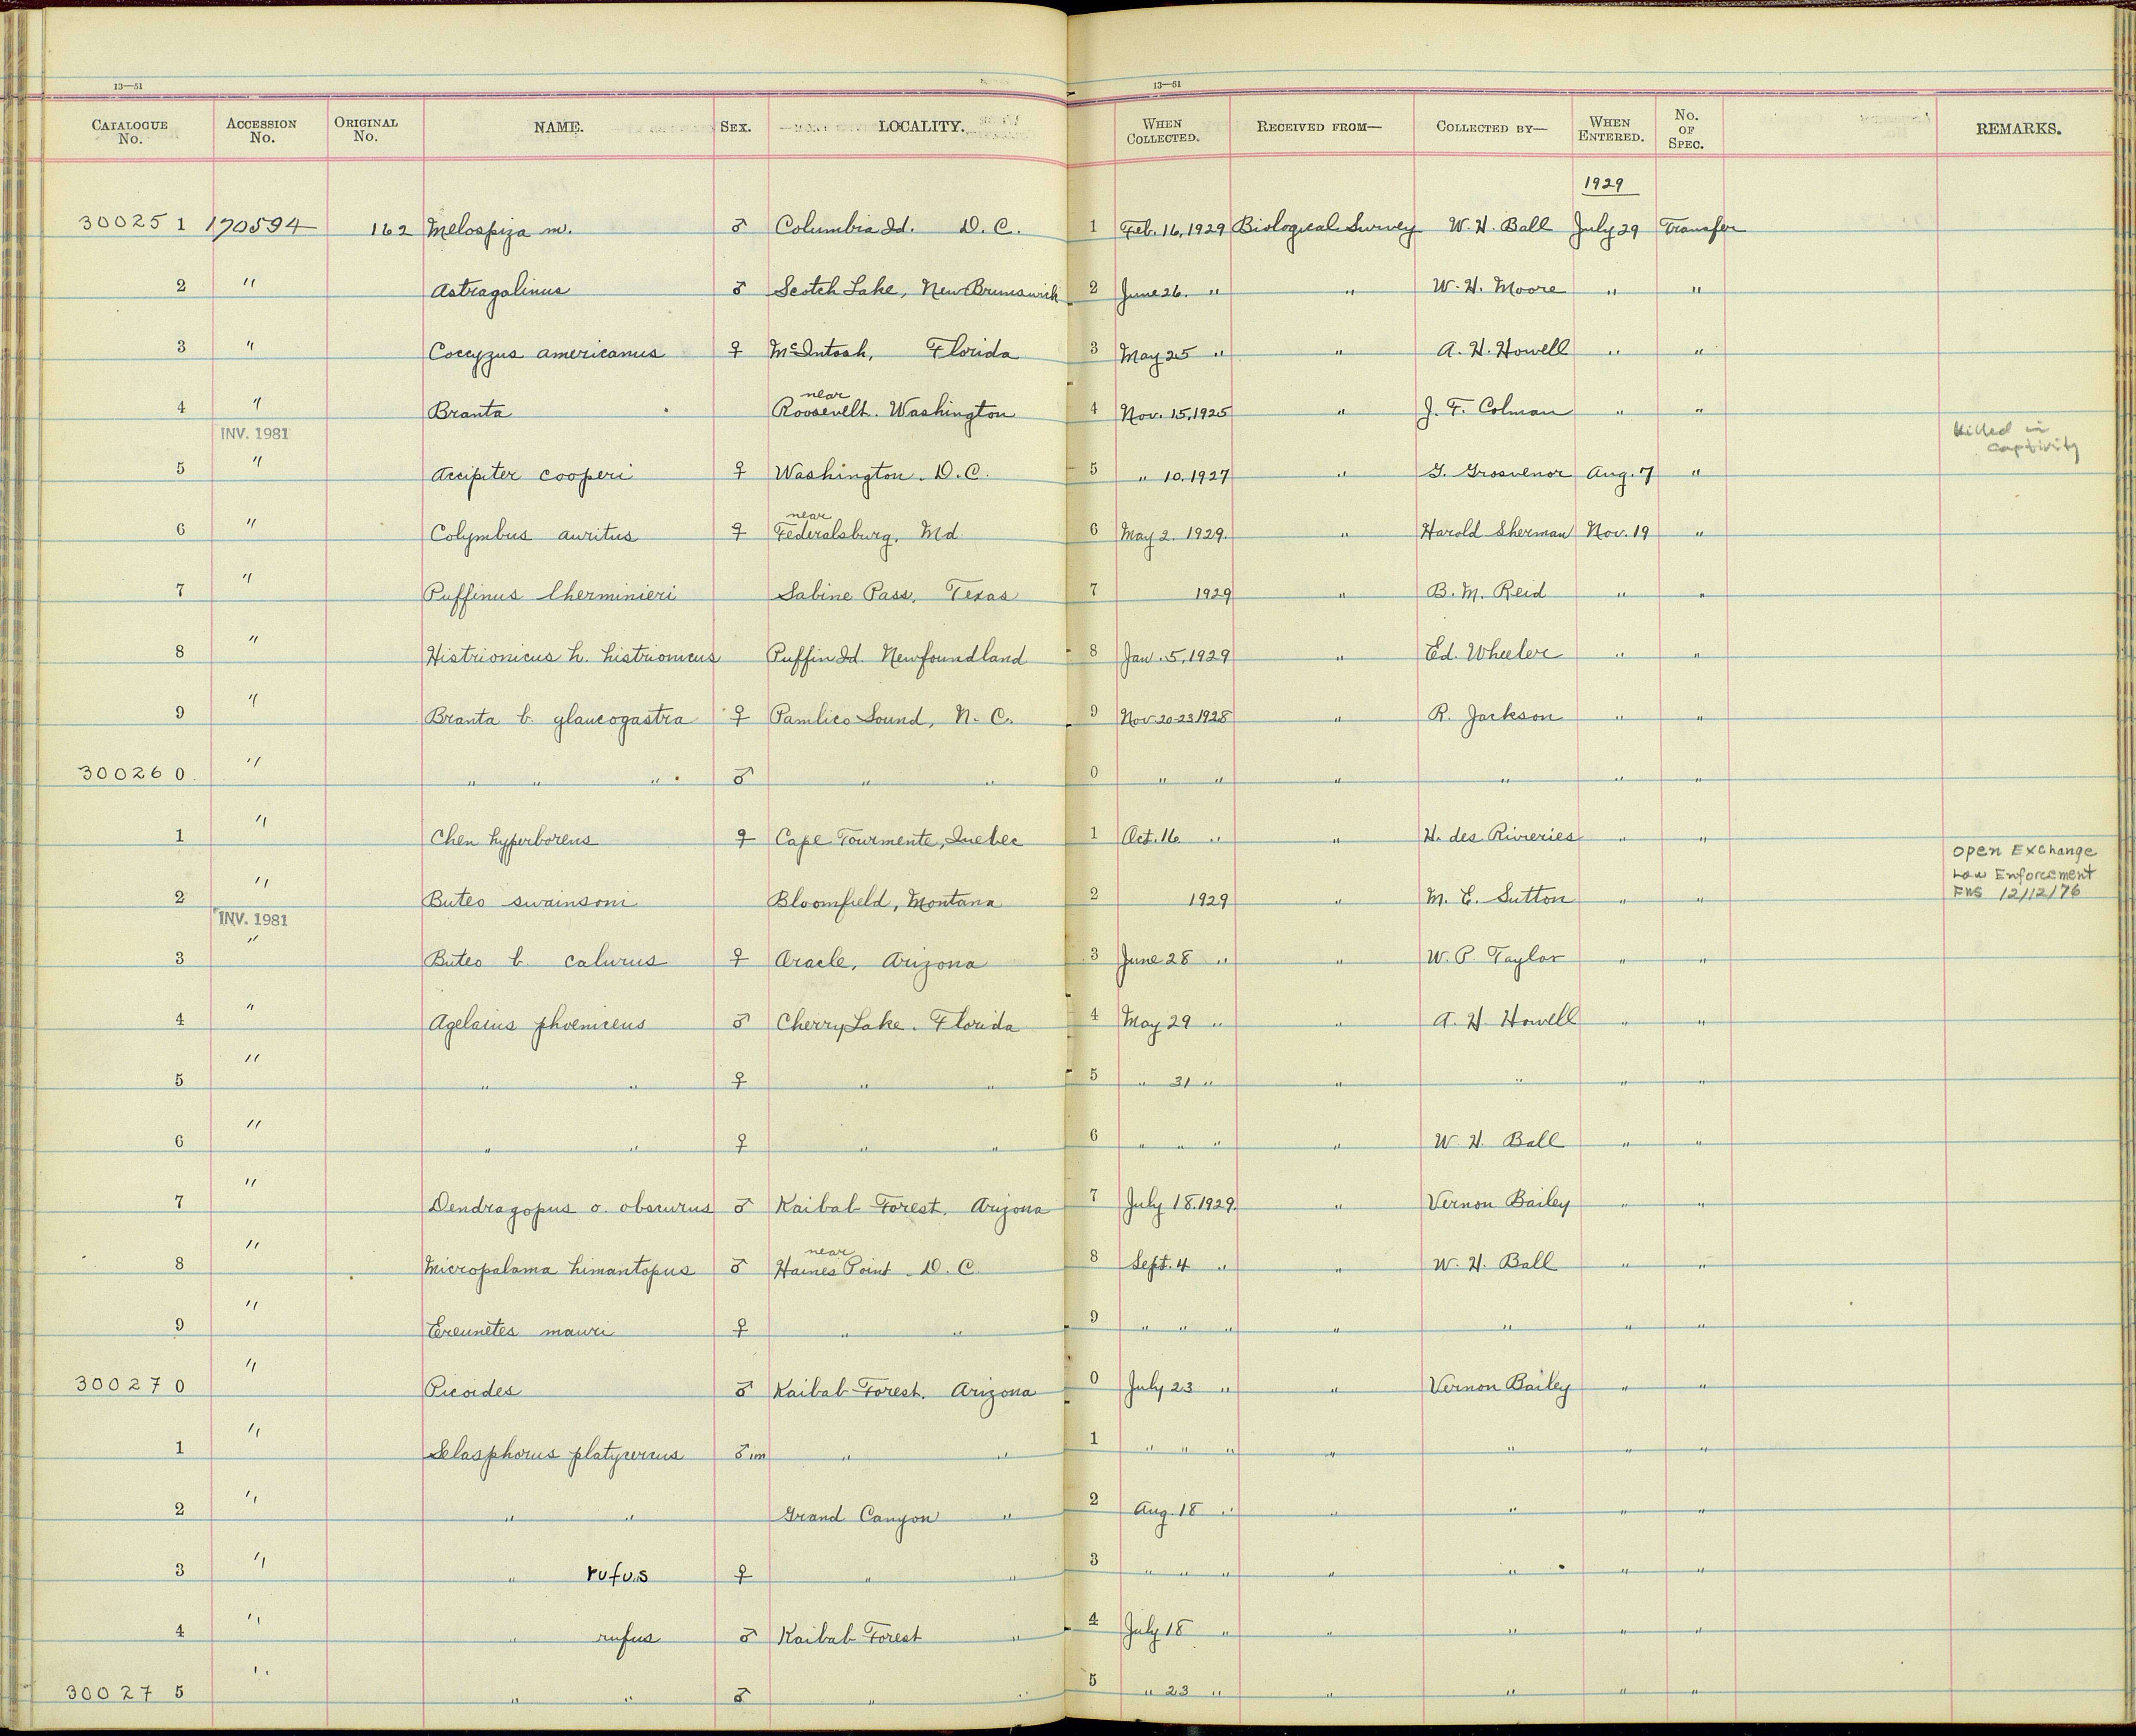 13—51 13—51
CATALOGUE No. ACCESSION No. ORIGINAL No. NAME. SEX. LOCALITY. WHEN COLLECTED. RECEIVED FROM— COLLECTED BY— WHEN ENTERED. No. OF SPEC. REMARKS.
1929
300251 170594 162 Melospiza m. ♂ Columbia Id. D. C. 1 Feb. 16, 1929 Biological Survey W. H. Ball July 29 Transfer
2 " Astragalinus ♂ Scotch Lake, New Brunswick 2 June 26. " " W. H. Moore " "
3 " Coccyzus americanus ♀ McIntosh, Florida 3 May 25 " " A. H. Howell " "
4 " Branta near Roosevelt. Washington 4 Nov. 15, 1925 " J. F. Colman " "
INV. 1981
killed in captivity
5 " Accipiter cooperi ♀ Washington. D. C. 5 " 10, 1927 " G. Grosvenor Aug. 7 "
6 " Colymbus auritus ♀ near Federalsburg, Md. 6 May 2. 1929. " Harold Sherman Nov. 19 "
7 " Puffinus lherminieri Sabine Pass, Texas 7 1929 " B. M. Reid " "
8 " Histrionicus h. histrionicus Puffin Id. Newfoundland 8 Jan. 5, 1929 " Ed. Wheeler " "
9 " Branta b. glaucogastra ♀ Pamlico Sound, N. C. 9 Nov. 20-23 1928 " R. Jackson " "
300260 " " " " ♂ " " 0 " " " " " "
1 " Chen hyperboreus ♀ Cape Tourmente, Quebec 1 Oct. 16 " " H. des Rivieries " "
Open Exchange
Law Enforcement
FWS 12/12/76
2 " Buteo swainsoni Bloomfield, Montana 2 1929 " M. E. Sutton " "
INV. 1981
3 " Buteo b. calurus ♀ Oracle, Arizona 3 June 28 " " W. P. Taylor " "
4 " Agelaius phoeniceus ♂ Cherry Lake. Florida 4 May 29 " " A. H. Howell " "
5 " " " ♀ " " 5 " 31 " " " " "
6 " " " ♀ " " 6 " " " " W. H. Ball " "
7 " Dendragopus o. obscurus ♂ Kaibab Forest. Arizona 7 July 18. 1929. " Vernon Bailey " "
8 " Micropalama himantopus ♂ near Haines Point D. C. 8 Sept. 4 " " W. H. Ball " "
9 " Ereunetes mauri ♀ " " 9 " " " " " " "
300270 " Picoides ♂ Kaibab Forest. Arizona 0 July 23 " " Vernon Bailey " "
1 " Selasphorus platycercus ♂ im " " 1 " " " " " " "
2 " " " Grand Canyon " 2 Aug. 18 " " " " "
3 " " rufus ♀ " " 3 " " " " " " "
4 " " rufus ♂ Kaibab Forest " 4 July 18 " " " " "
300275 " " " ♂ " " 5 " 23 " " " " "